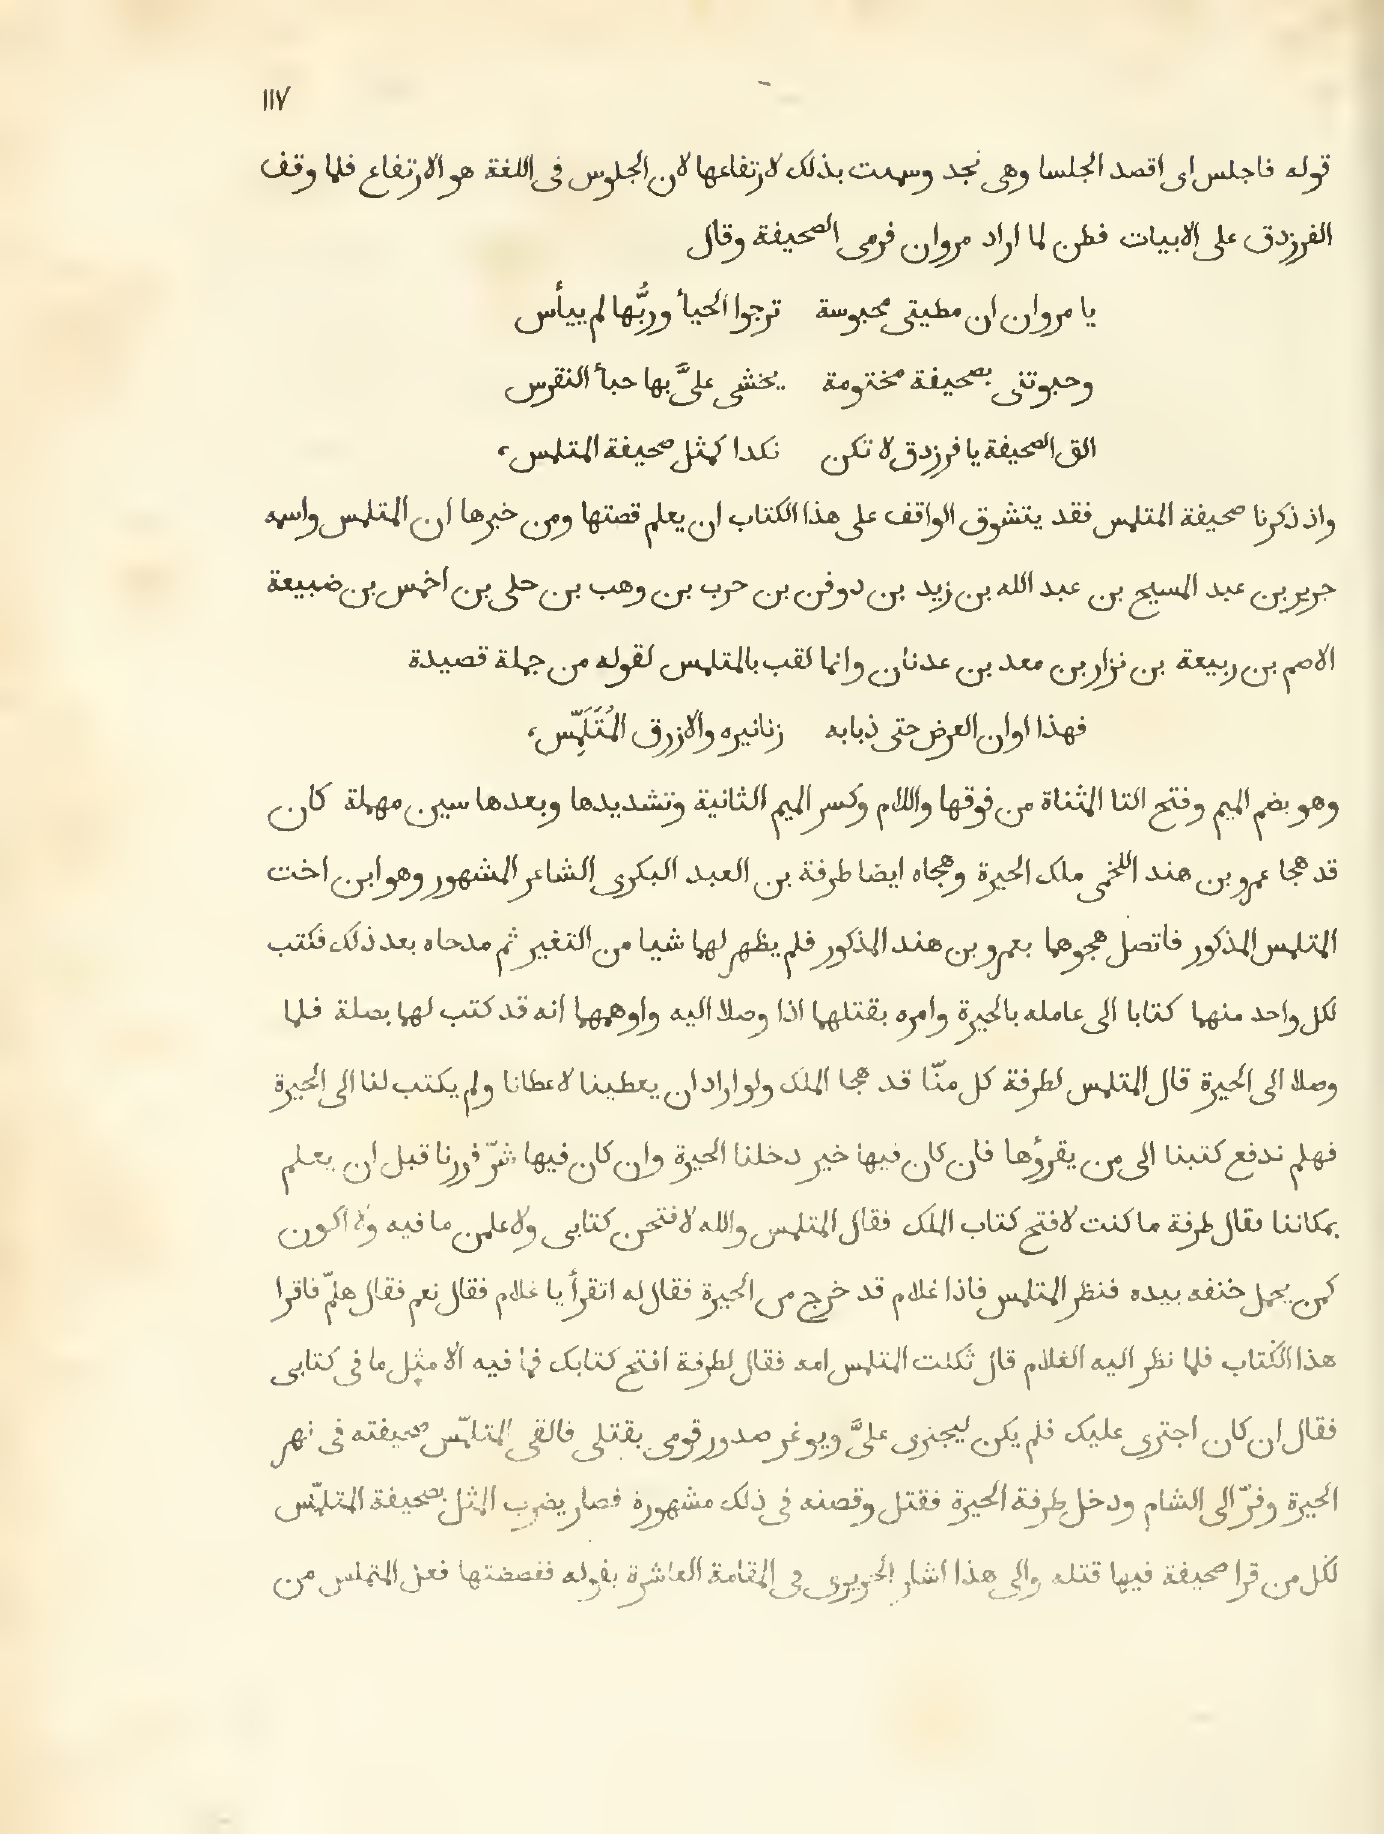 ١١٧
قوله فاجلس اى اقصد الجلسا وهى نجد وسميت بذلك لارتفاعها لان الجلوس فى اللغة هو الارتفاع فلما وقف
الفرزدق على الابيات فطن لما اراد مروان فرمى الصحيفة وقال
يا مروان ان مطيتى محبوسة ترجوا الحيأ وربُّها لم ييأس
وحبوتنى بصحيفة مختومة يخشى علىَّ بها حبأ النقرس
الق الصحيفة يا فرزدق لا تكن نكدا كمثل صحيفة المتلمس،
واذ ذكرنا صحيفة المتلمس فقد يتشوق الواقف على هذا الكتاب ان يعلم قصتها ومن خبرها ان المتلمس واسمه
جرير بن عبد المسيح بن عبد الله بن زيد بن دوفن بن حرب بن وهب بن حلى بن اخمس بن ضبيعة
الاصم بن ربيعة بن نزار بن معد بن عدنان وانما لقب بالمتلمس لقوله من جملة قصيدة
فهذا اوان العرض حتى ذبابه زنانيره والازرق المُتَلَمِّس،
وهو بضم الميم وفتح التا المثناة من فوقها واللام وكسر الميم الثانية وتشديدها وبعدها سين مهملة كان
قد هجا عمرو بن هند اللخمى ملك الحيرة وهجاه ايضا طرفة بن العبد البكرى الشاعر المشهور وهو ابن اخت
المتلمس المذكور فاتصل هجوهما بعمرو بن هند المذكور فلم يظهر لهما شيا من التغير ثم مدحاه بعد ذلك فكتب
لكل واحد منهما كتابا الى عامله بالحيرة وامره بقتلهما اذا وصلا اليه واوهمهما انه قد كتب لهما بصلة فلما
وصلا الى الحيرة قال المتلمس لطرفة كل منّا قد هجا الملك ولو اراد ان يعطينا لاعطانا ولم يكتب لنا الى الحيرة
فهلم ندفع كتبنا الى من يقرؤها فان كان فيها خير دخلنا الحيرة وان كان فيها شرّ فررنا قبل ان يعلم
بمكاننا فقال طرفة ما كنت لافتح كتاب الملك فقال المتلمس والله لافتحن كتابى ولاعلمن ما فيه ولا اكون
كمن يحمل خنفه بيده فنظر المتلمس فاذا غلام قد خرج من الحيرة فقال له اتقرأ يا غلام فقال نعم فقال هلمّ فاقرا
هذا الكتاب فلما نظر اليه الغلام قال ثكلت المتلمس امه فقال لطرفة افتح كتابك فما فيه الا مثل ما فى كتابى
فقال ان كان اجترى عليك فلم يكن ليجترى علىَّ ويوغر صدور قومى بقتلى فالقى المتلمّس صحيفته فى نهر
الحيرة وفرّ الى الشام ودخل طرفة الحيرة فقتل وقصته فى ذلك مشهورة فصار يضرب المثل بصحيفة المتلمّس
لكل من قرا صحيفة فيها قتله والى هذا اشار الحريرى فى المقامة العاشرة بقوله ففضضتها فعل المتملس من